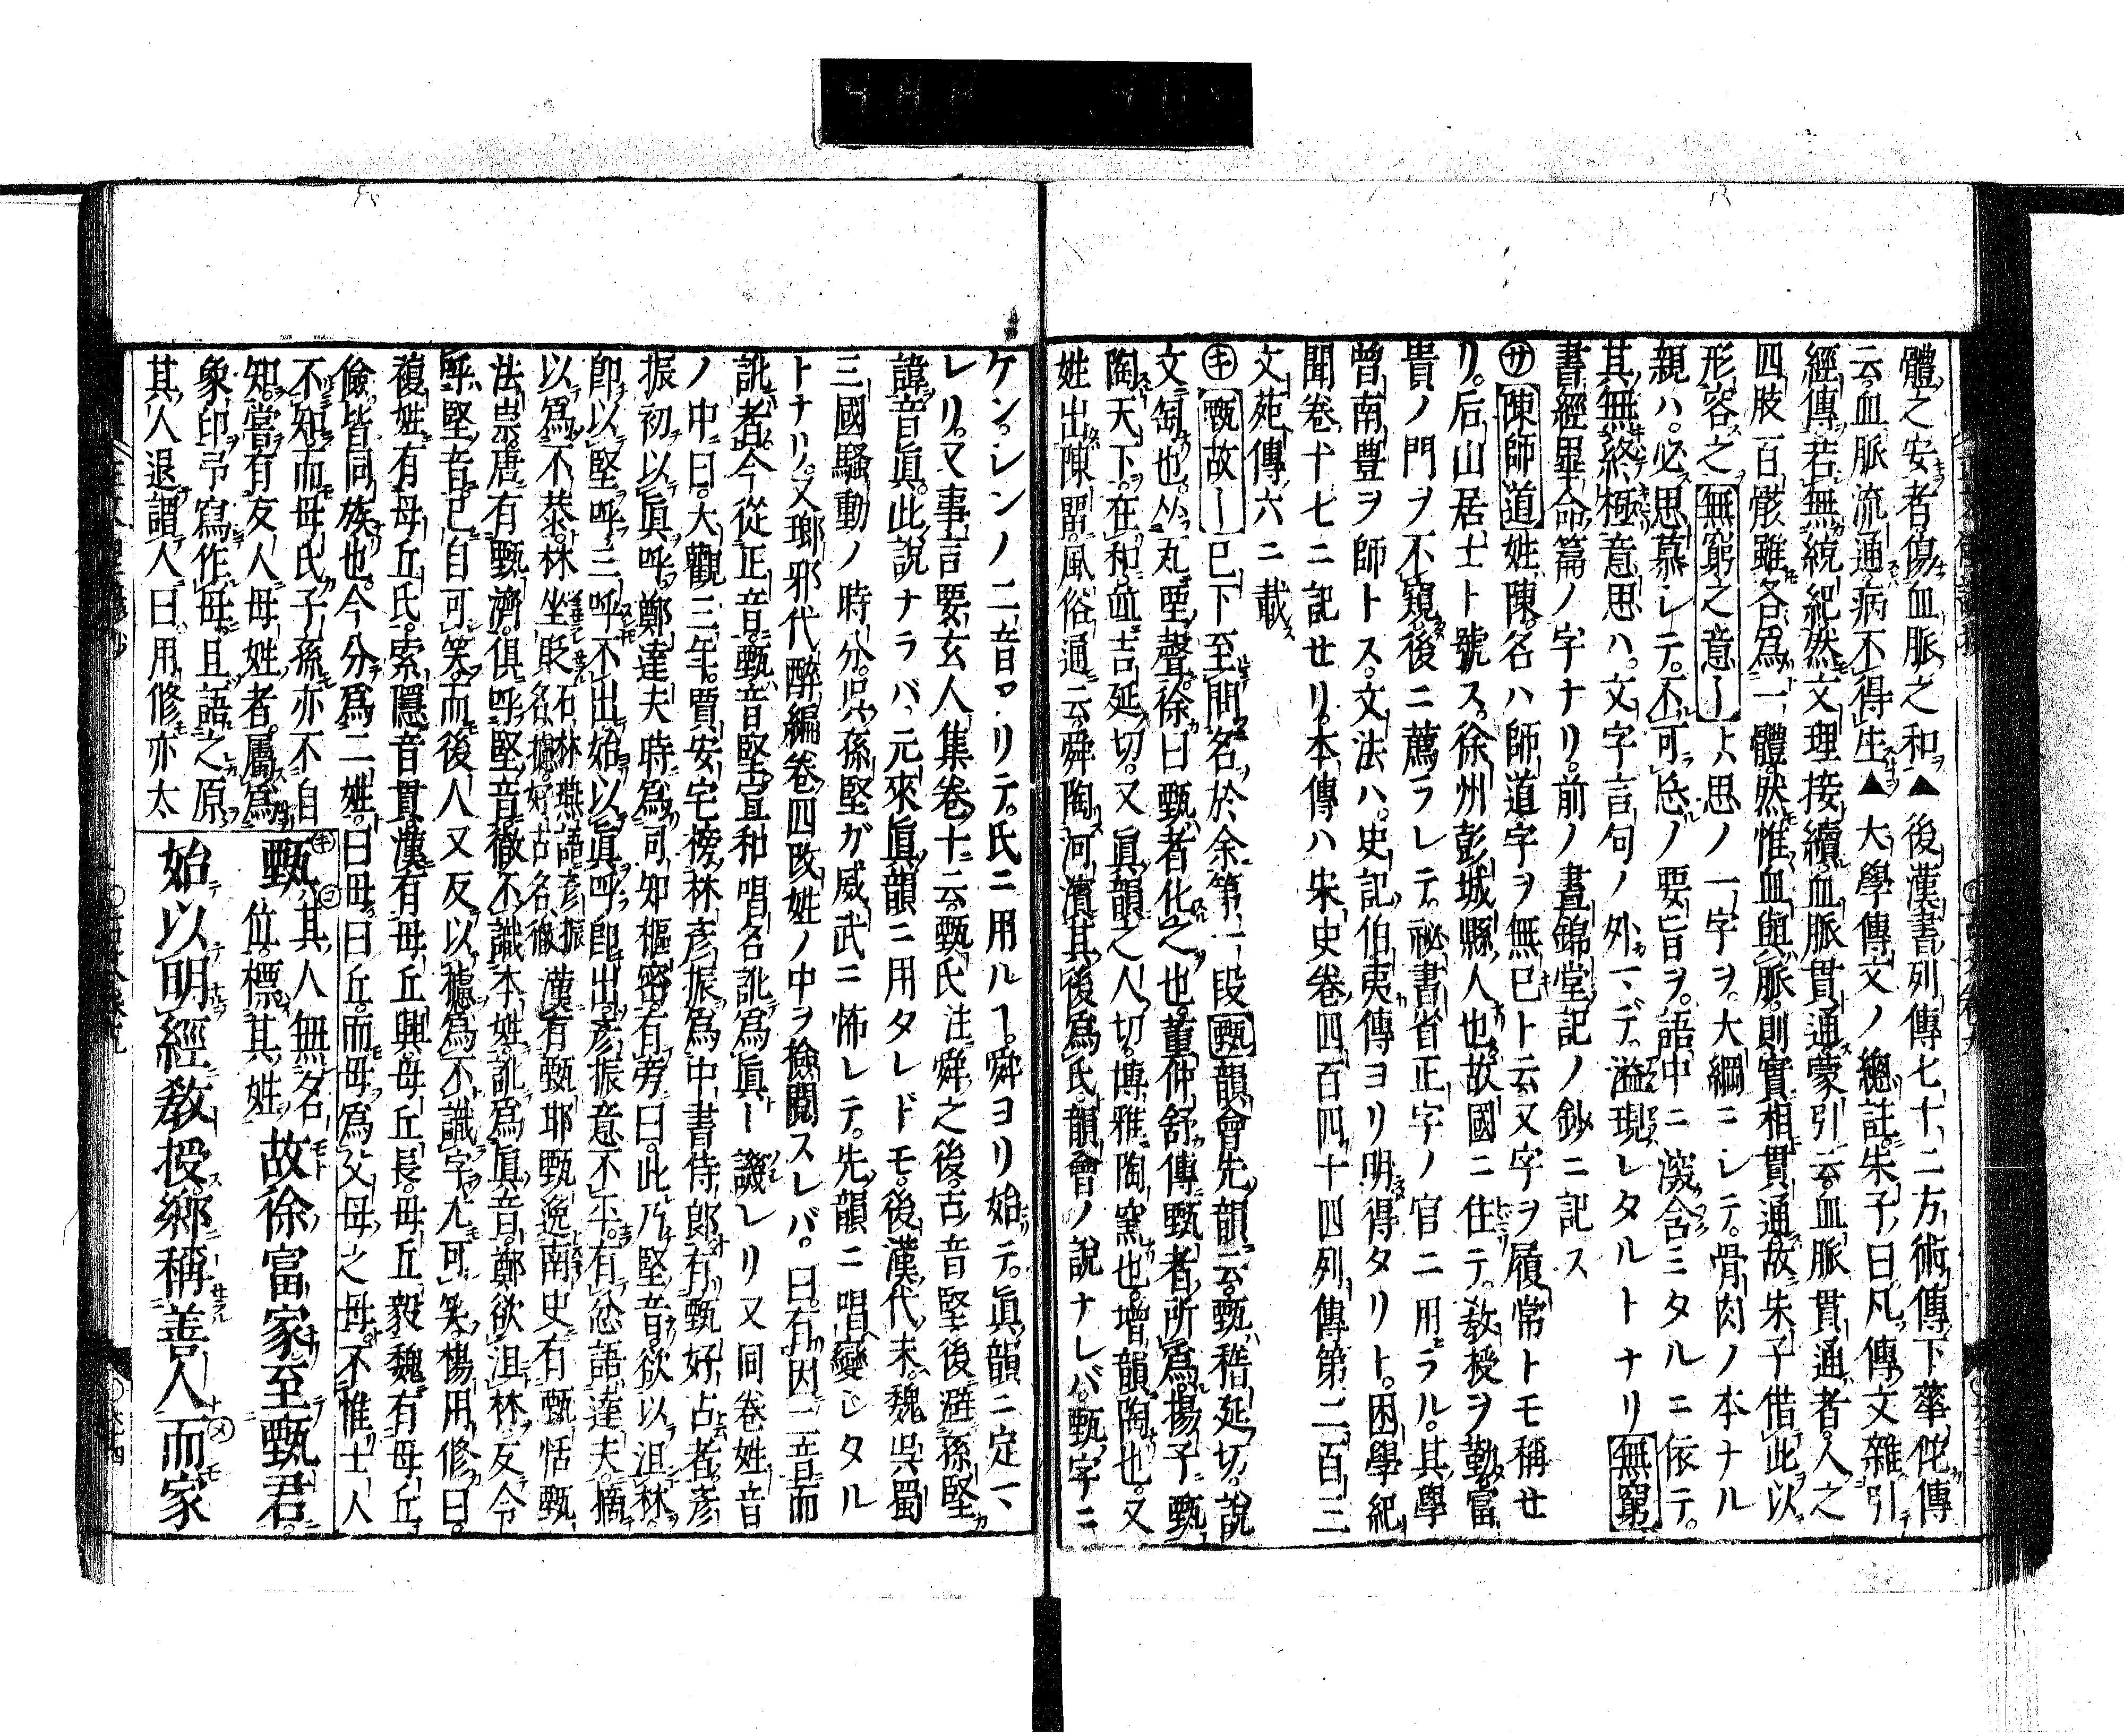 體之安者傷血脈之和▲後漢書列傳七十二方術傳下華佗傳
云血脈流通病不得生▲大學傳文ノ總註朱子曰凡傳文雜引
經傳若無統紀然文理接續血脈貫通蒙引云血脈貫通者人之
四肢百骸雖各爲一體然惟血與脈則實相貫通故朱子借此以
形容之無窮之意ーハ思ノ一字ヲ大綱ニシテ骨肉ノ本ナル
親ハ必思慕シテ不可忘ノ要旨ヲ語中ニ滀含ミタルニ依テ
其無終極意思ハ文字言句ノ外マデ溢現レタルトナリ無窮
書經畢命篇ノ字ナリ前ノ晝錦堂記ノ鈔ニ記ス
サ陳師道姓陳名ハ師道字ヲ無已ト云又字ヲ履常トモ稱セ
リ后山居士ト號ス徐州彭城縣人也故國ニ住テ教授ヲ勤富
貴ノ門ヲ不窺後ニ薦ラレテ祕書省正字ノ官ニ用ラル其學
曾南豊ヲ師トス文法ハ史記伯夷傳ヨリ明得タリト困學紀
聞卷十七ニ記セリ本傳ハ宋史卷四百四十四列傳第二百三
文苑傳六ニ載ス
キ甄故ー已下至問名於余第一段甄韻會先韻云甄稽延切説
文匋也从瓦垔聲徐曰甄者化之也董仲舒傳甄者所爲揚子甄
陶天下在和竝吉延切又眞韻之人切博雅陶窯也增韻陶也又
姓出陳留風俗通云舜陶河濱其後爲氏韻會ノ説ナレバ甄字ニ
ケンシンノ二音アリテ氏ニ用ルヿ舜ヨリ始テ眞韻ニ定マ
レリ又事言要玄人集卷十二云甄氏注舜之後古音堅後避孫堅
諱音眞此説ナラバ元來眞韻ニ用タレドモ後漢代末魏呉蜀
三國騷動ノ時分呉孫堅ガ威武ニ怖レテ先韻ニ唱變シタル
トナリ又瑯邪代醉編卷四改姓ノ中ヲ撿閲スレバ曰有因二音而
訛者今從正音甄音堅宣和唱名訛爲眞ー譏レリ又同卷姓音
ノ中ニ曰大觀三年賈安宅榜林彥振爲中書侍郎有甄好占者彥
振初以眞呼鄭達夫時爲同知樞密有旁曰此乃堅音欲以沮林
卽以堅呼三呼不出始以眞呼卽出彥振意不平有忿語達夫摘
以爲不恭林坐貶石林燕語彥振名攄好古名徹漢有甄邯甄逸南史有甄恬甄
法崇唐有甄濟俱呼堅音徹不識本姓訛爲眞音鄭欲沮林反令
呼堅音已自可笑而後人又反以攄爲不識字尤可笑楊用修曰
複姓有毋丘氏索隱音貫漢有毋丘興毋丘長毋丘毅魏有毋丘
儉皆同族也今分爲二姓曰毋曰丘而毋爲父母之母不惟士人
不知而毋氏子孫亦不自
知嘗有友人毋姓者屬爲
象印予寫作毋且語之原
其人退謂人曰用修亦太
甄其人無名故徐富家至甄君
位標其姓
始以明經敎授鄉稱善人而家